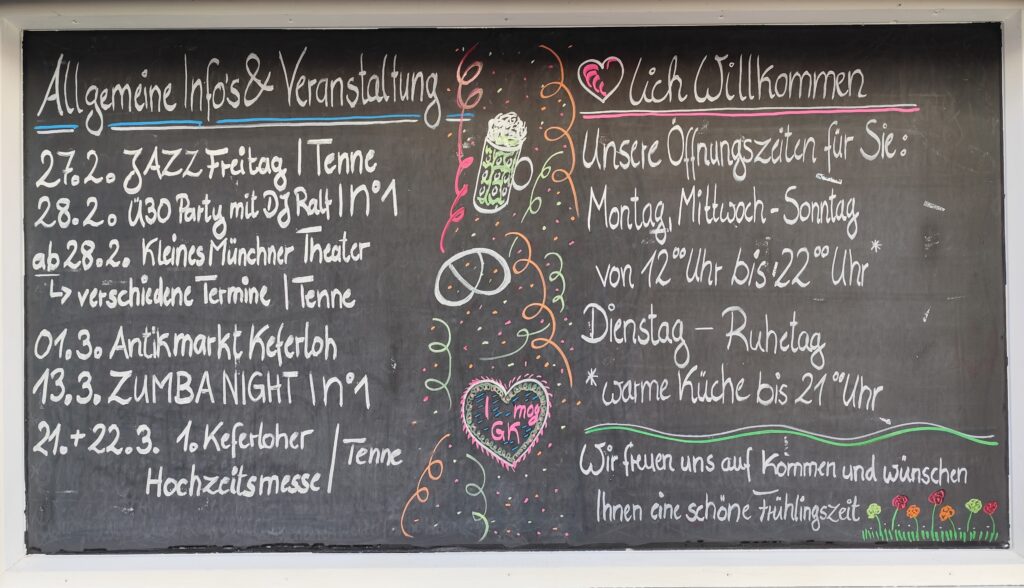 Allgemeine Info's & Veranstaltung
27.2. JAZZ Freitag | Tenne
28.2. Ü30 Party mit DJ Ralf | N°1
ab 28.2. Kleines Münchner Theater
↳ verschiedene Termine | Tenne
01.3. Antikmarkt Keferloh
13.3. ZUMBA NIGHT | N°1
21.+22.3. 1. Keferloher
Hochzeitsmesse / Tenne
I mog
GK
lich Willkommen
Unsere Öffnungszeiten für Sie:
Montag, Mittwoch - Sonntag
von 12°° Uhr bis 22°° Uhr*
Dienstag - Ruhetag
*warme Küche bis 21°° Uhr
Wir freuen uns auf Kommen und wünschen
Ihnen eine schöne Frühlingszeit